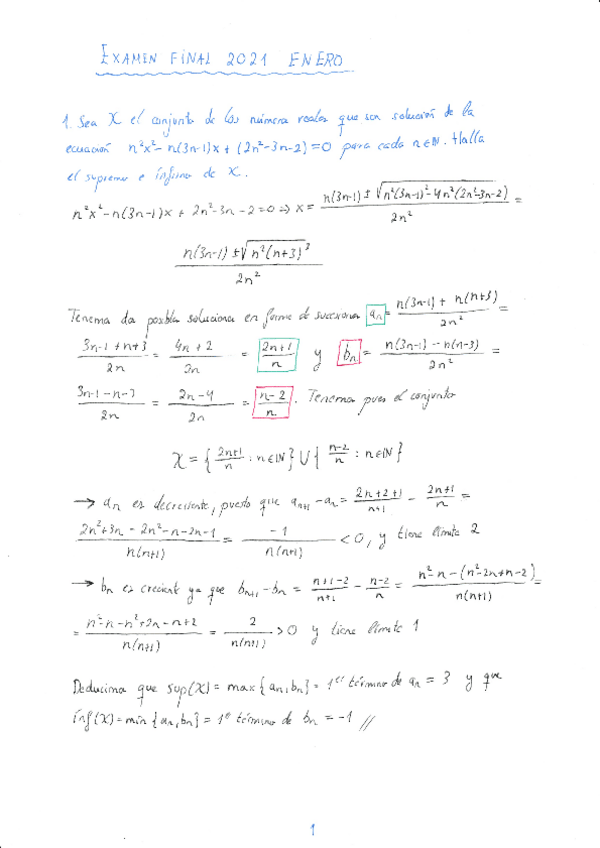 EXAMEN FINAL 2021 ENERO
1. Sea X el conjunto de los números reales que son solución de la
ecuación n²x² - n(3n-1)x + (2n²-3n-2) = 0 para cada n∈ℕ. Halla
el supremo e ínfimo de X.
n²x² - n(3n-1)x + 2n²-3n-2 = 0 ⇒ x = (n(3n-1) ± √(n²(3n-1)² - 4n²(2n²-3n-2)))/(2n²) =
(n(3n-1) ± √(n²(n+3)²))/(2n²)
Tenemos dos posibles soluciones en forma de sucesiones a_n = (n(3n-1) + n(n+3))/(2n²) =
(3n-1+n+3)/(2n) = (4n+2)/(2n) = (2n+1)/n y b_n = (n(3n-1) - n(n-3))/(2n²) =
(3n-1-n-3)/(2n) = (2n-4)/(2n) = (n-2)/n. Tenemos pues el conjunto
X = {(2n+1)/n : n∈ℕ} ∪ {(n-2)/n : n∈ℕ}
→ a_n es decreciente, puesto que a_{n+1} - a_n = (2n+2+1)/(n+1) - (2n+1)/n =
(2n²+3n-2n²-n-2n-1)/(n(n+1)) = -1/(n(n+1)) < 0, y tiene límite 2
→ b_n es creciente ya que b_{n+1} - b_n = (n+1-2)/(n+1) - (n-2)/n = (n²-n-(n²-2n+n-2))/(n(n+1)) =
= (n²-n-n²+2n-n+2)/(n(n+1)) = 2/(n(n+1)) > 0 y tiene límite 1
Deducimos que sup(X) = max{a_n, b_n} = 1er término de a_n = 3 y que
ínf(X) = mín{a_n, b_n} = 1er término de b_n = -1 //
1